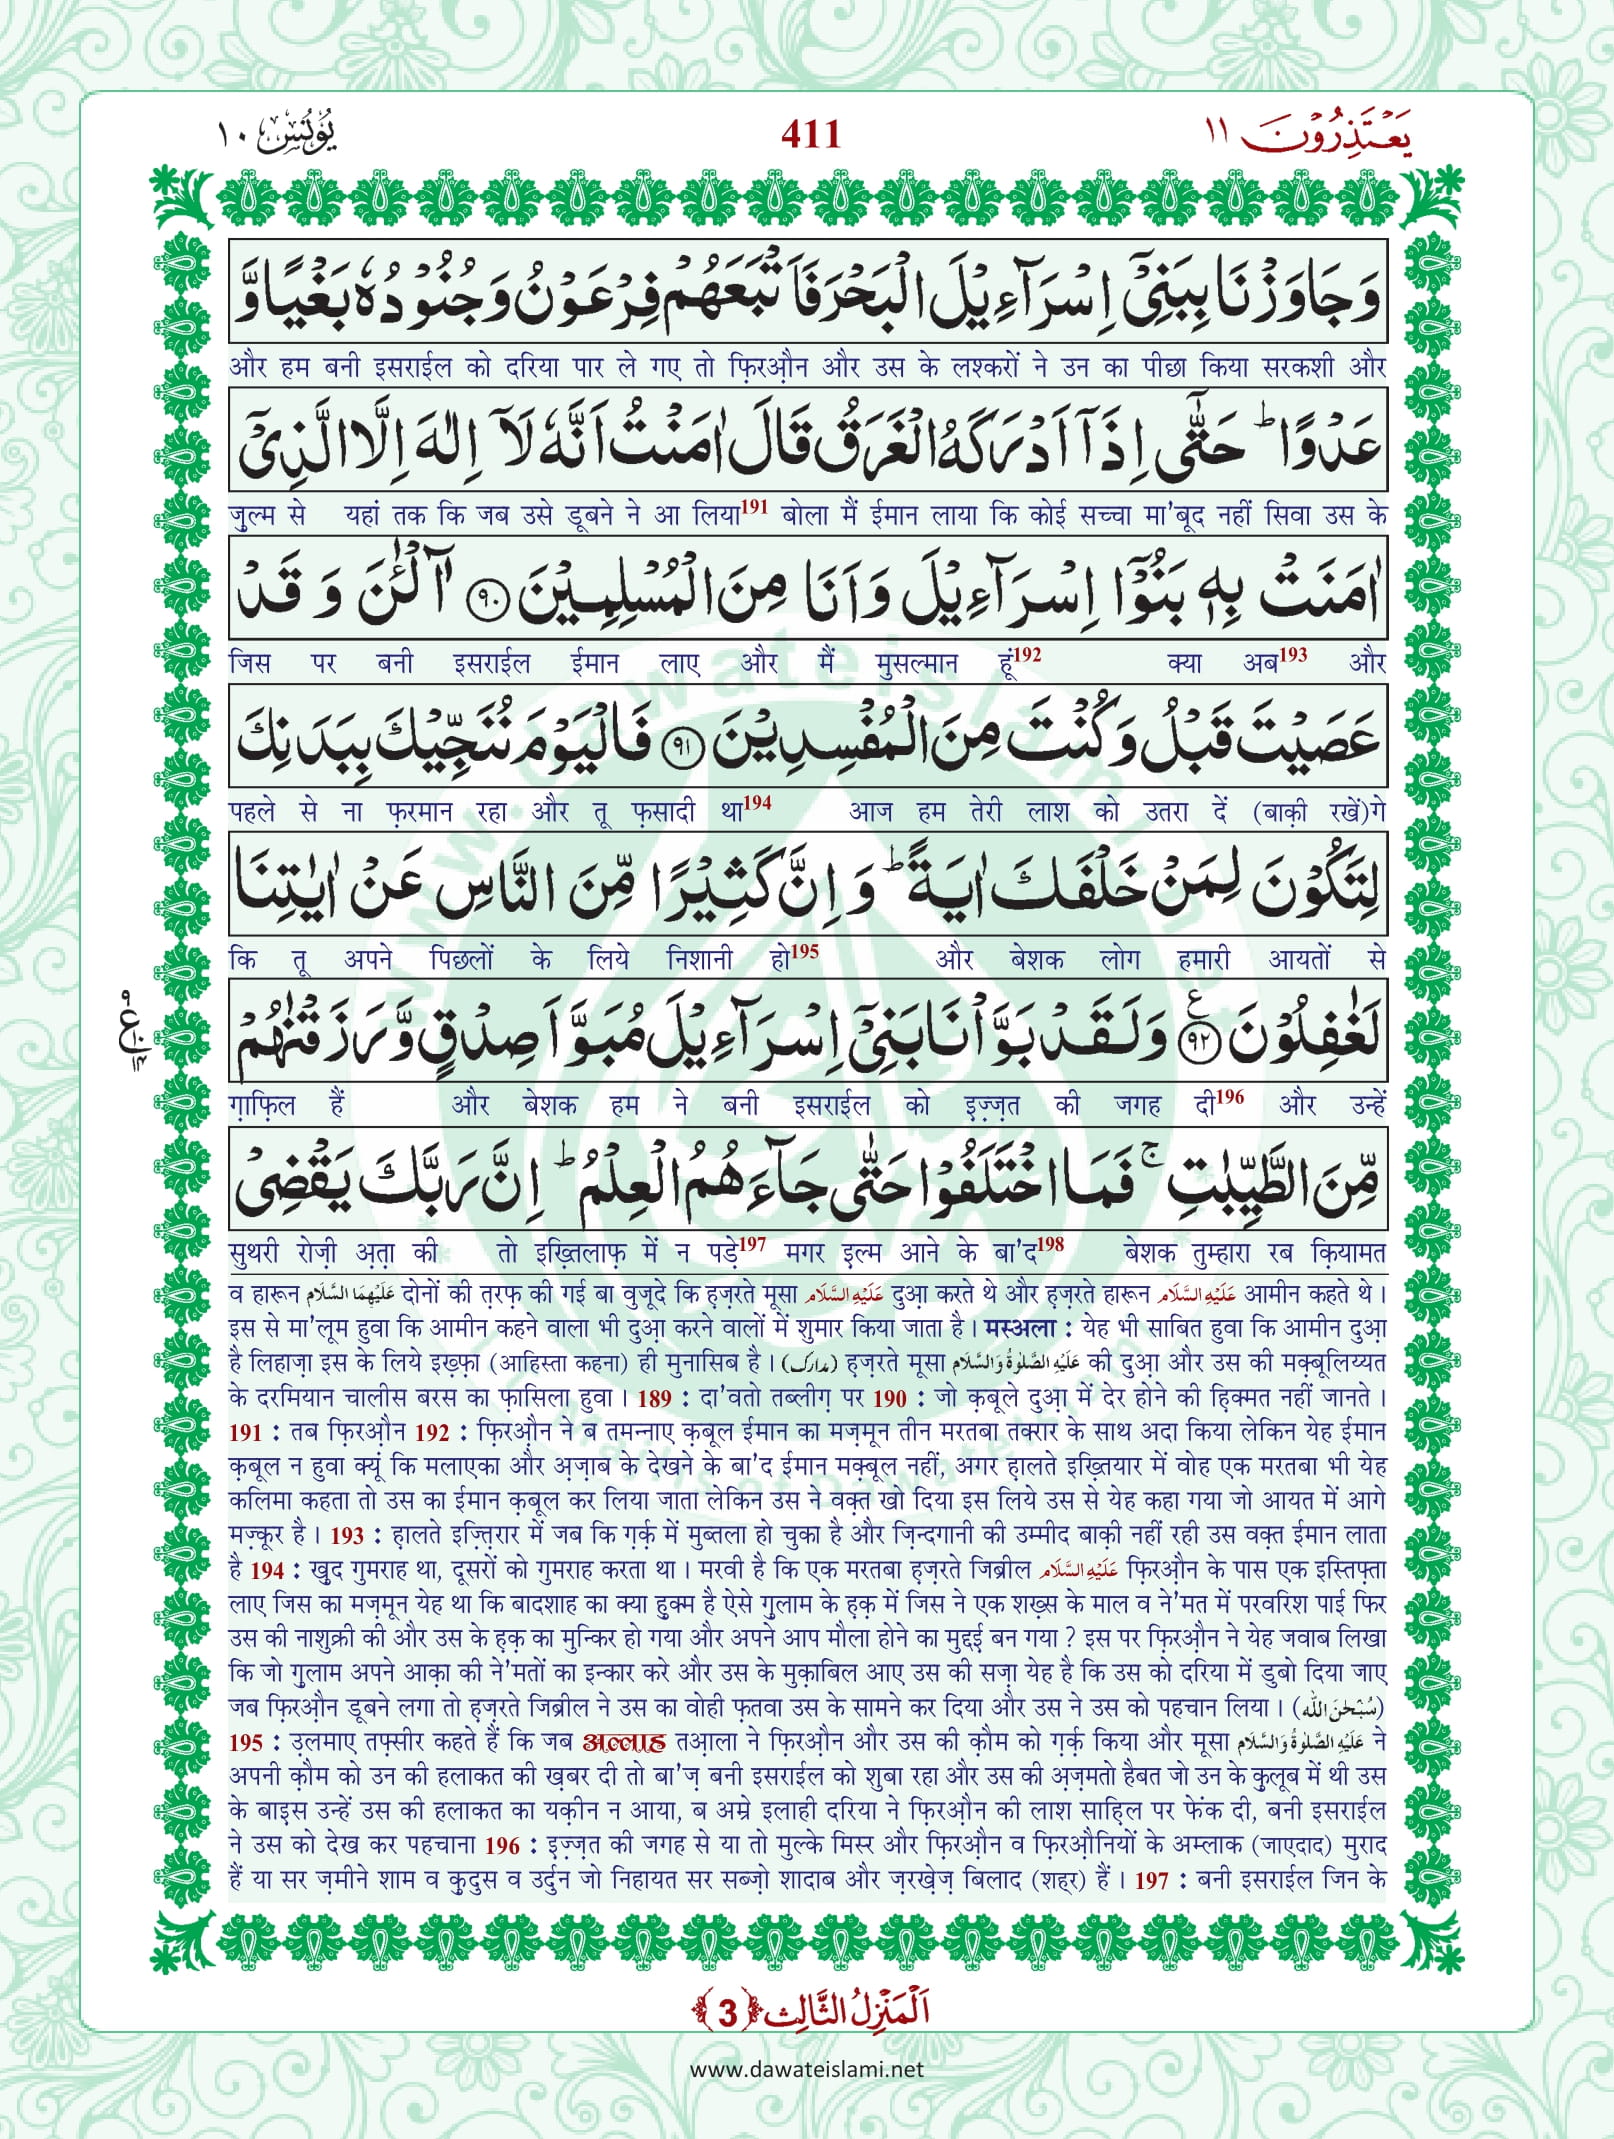 يَعْتَذِرُوْنَ ١١
411
يُوْنُس ١٠
وَجَاوَزْنَا بِبَنِىْۤ اِسْرَآءِيْلَ الْبَحْرَ فَاَتْبَعَهُمْ فِرْعَوْنُ وَجُنُوْدُهٗ بَغْيًا وَّ
और हम बनी इसराईल को दरिया पार ले गए तो फ़िरऔ़न और उस के लश्करों ने उन का पीछा किया सरकशी और
عَدْوًاؕ حَتّٰۤى اِذَاۤ اَدْرَكَهُ الْغَرَقُ قَالَ اٰمَنْتُ اَنَّهٗ لَاۤ اِلٰهَ اِلَّا الَّذِىْۤ
ज़ुल्म से यहां तक कि जब उसे डूबने ने आ लिया191 बोला मैं ईमान लाया कि कोई सच्चा मा'बूद नहीं सिवा उस के
اٰمَنَتْ بِهٖ بَنُوْۤا اِسْرَآءِيْلَ وَاَنَا مِنَ الْمُسْلِمِيْنَ ﴿٩٠﴾ آٰلْـٰٔنَ وَ قَدْ
जिस पर बनी इसराईल ईमान लाए और मैं मुसल्मान हूं192 क्या अब193 और
عَصَيْتَ قَبْلُ وَكُنْتَ مِنَ الْمُفْسِدِيْنَ ﴿٩١﴾ فَالْيَوْمَ نُنَجِّيْكَ بِبَدَنِكَ
पहले से ना फ़रमान रहा और तू फ़सादी था194 आज हम तेरी लाश को उतरा दें (बाक़ी रखें)गे
لِتَكُوْنَ لِمَنْ خَلْفَكَ اٰيَةًؕ وَ اِنَّ كَثِيْرًا مِّنَ النَّاسِ عَنْ اٰيٰتِنَا
कि तू अपने पिछलों के लिये निशानी हो195 और बेशक लोग हमारी आयतों से
لَغٰفِلُوْنَ ﴿٩٢﴾ وَلَقَدْ بَوَّاْنَا بَنِىْۤ اِسْرَآءِيْلَ مُبَوَّاَ صِدْقٍ وَّرَزَقْنٰهُمْ
ग़ाफ़िल हैं और बेशक हम ने बनी इसराईल को इ़ज़्ज़त की जगह दी196 और उन्हें
مِّنَ الطَّيِّبٰتِۚ فَمَا اخْتَلَفُوْا حَتّٰى جَآءَهُمُ الْعِلْمُؕ اِنَّ رَبَّكَ يَقْضِىْ
सुथरी रोज़ी अ़ता की तो इख़्तिलाफ़ में न पड़े197 मगर इ़ल्म आने के बा'द198 बेशक तुम्हारा रब क़ियामत
व हारून عَلَيْهِمَا السَّلَام दोनों की त़रफ़ की गई बा वुजूदे कि ह़ज़रते मूसा عَلَيْهِ السَّلَام दुआ़ करते थे और ह़ज़रते हारून عَلَيْهِ السَّلَام आमीन कहते थे ।
इस से मा'लूम हुवा कि आमीन कहने वाला भी दुआ़ करने वालों में शुमार किया जाता है । मस्अला : येह भी साबित हुवा कि आमीन दुआ़
है लिहाज़ा इस के लिये इख़्फ़ा (आहिस्ता कहना) ही मुनासिब है । (مدارک) ह़ज़रते मूसा عَلَيْهِ الصَّلٰوةُ وَالسَّلَام की दुआ़ और उस की मक़्बूलिय्यत
के दरमियान चालीस बरस का फ़ासिला हुवा । 189 : दा'वतो तब्लीग़ पर 190 : जो क़बूले दुआ़ में देर होने की ह़िक्मत नहीं जानते ।
191 : तब फ़िरऔ़न 192 : फ़िरऔ़न ने ब तमन्नाए क़बूल ईमान का मज़मून तीन मरतबा तक्रार के साथ अदा किया लेकिन येह ईमान
क़बूल न हुवा क्यूं कि मलाएका और अ़ज़ाब के देखने के बा'द ईमान मक़्बूल नहीं, अगर ह़ालते इख़्तियार में वोह एक मरतबा भी येह
कलिमा कहता तो उस का ईमान क़बूल कर लिया जाता लेकिन उस ने वक़्त खो दिया इस लिये उस से येह कहा गया जो आयत में आगे
मज़्कूर है । 193 : ह़ालते इज़्त़िरार में जब कि ग़र्क़ में मुब्तला हो चुका है और ज़िन्दगानी की उम्मीद बाक़ी नहीं रही उस वक़्त ईमान लाता
है 194 : ख़ुद गुमराह था, दूसरों को गुमराह करता था । मरवी है कि एक मरतबा ह़ज़रते जिब्रील عَلَيْهِ السَّلَام फ़िरऔ़न के पास एक इस्तिफ़्ता
लाए जिस का मज़मून येह था कि बादशाह का क्या हुक्म है ऐसे ग़ुलाम के ह़क़ में जिस ने एक शख़्स के माल व ने'मत में परवरिश पाई फिर
उस की नाशुक्री की और उस के ह़क़ का मुन्किर हो गया और अपने आप मौला होने का मुद्दई बन गया ? इस पर फ़िरऔ़न ने येह जवाब लिखा
कि जो ग़ुलाम अपने आक़ा की ने'मतों का इन्कार करे और उस के मुक़ाबिल आए उस की सज़ा येह है कि उस को दरिया में डुबो दिया जाए
जब फ़िरऔ़न डूबने लगा तो ह़ज़रते जिब्रील ने उस का वोही फ़तवा उस के सामने कर दिया और उस ने उस को पहचान लिया । (سُبْحٰنَ اللّٰه)
195 : उ़लमाए तफ़्सीर कहते हैं कि जब अल्लाह तआ़ला ने फ़िरऔ़न और उस की क़ौम को ग़र्क़ किया और मूसा عَلَيْهِ الصَّلٰوةُ وَالسَّلَام ने
अपनी क़ौम को उन की हलाकत की ख़बर दी तो बा'ज़ बनी इसराईल को शुबा रहा और उस की अ़ज़मतो हैबत जो उन के क़ुलूब में थी उस
के बाइस उन्हें उस की हलाकत का यक़ीन न आया, ब अम्रे इलाही दरिया ने फ़िरऔ़न की लाश साह़िल पर फेंक दी, बनी इसराईल
ने उस को देख कर पहचाना 196 : इ़ज़्ज़त की जगह से या तो मुल्के मिस्र और फ़िरऔ़न व फ़िरऔ़नियों के अम्लाक (जाएदाद) मुराद
हैं या सर ज़मीने शाम व क़ुदुस व उर्दुन जो निहायत सर सब्ज़ो शादाब और ज़रख़ेज़ बिलाद (शहर) हैं । 197 : बनी इसराईल जिन के
اَلْمَنْزِلُ الثَّالِث ﴿3﴾
www.dawateislami.net